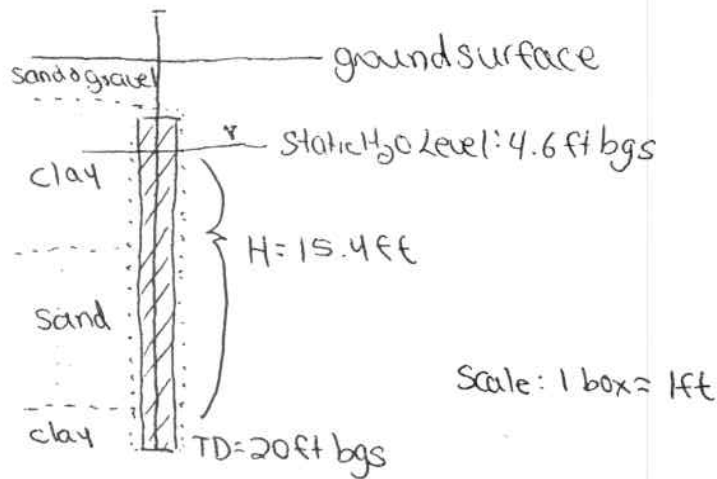 ground surface
sand & gravel
Static H₂O Level: 4.6 ft bgs
clay
H = 15.4 ft
sand
Scale: 1 box = 1ft
clay
TD=20ft bgs